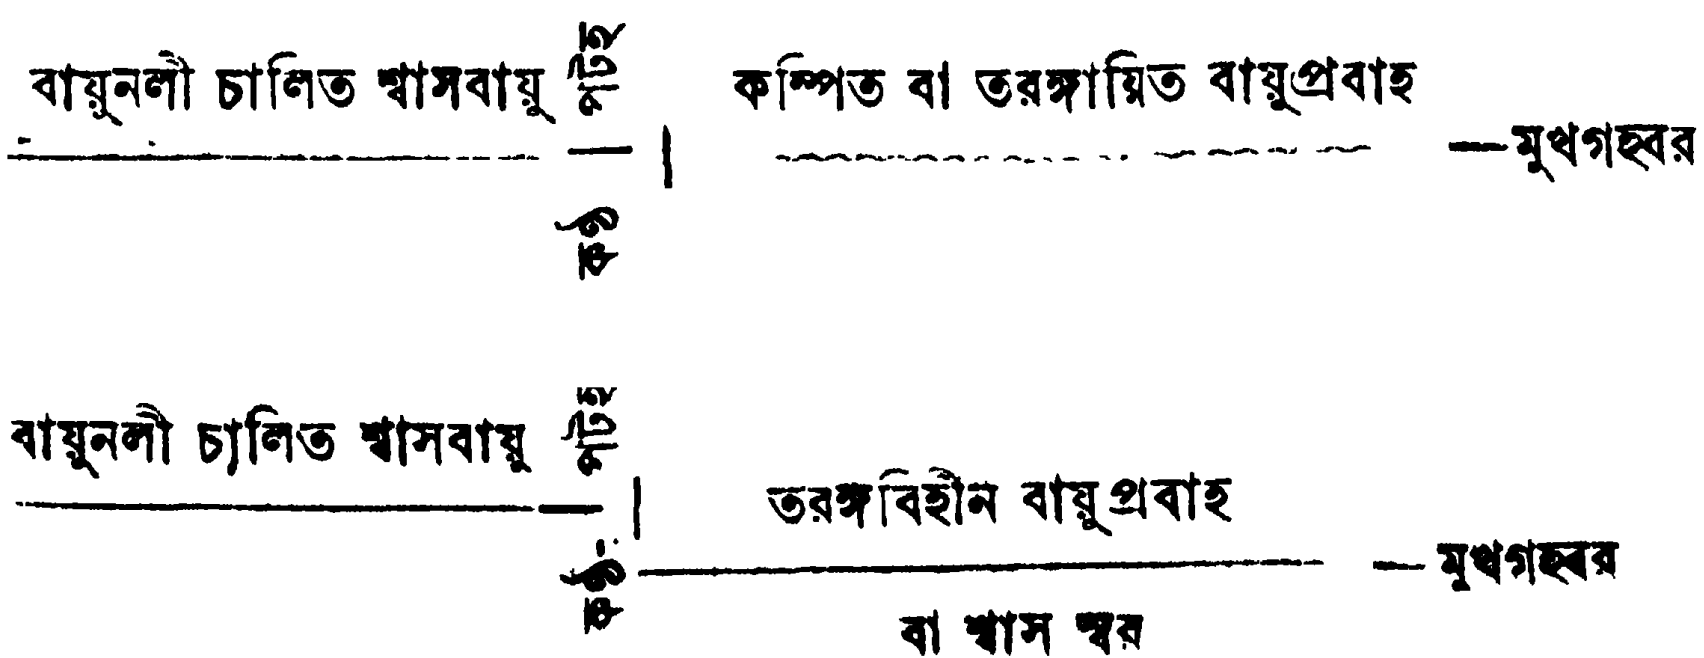 বায়ুনলী চালিত শ্বাসবায়ু
কম্পিত বা তরঙ্গায়িত বায়ুপ্রবাহ
মুখগহ্বর
বায়ুনলী চালিত শ্বাসবায়ু
তরঙ্গবিহীন বায়ুপ্রবাহ
মুখগহ্বর
বা শ্বাস স্বর